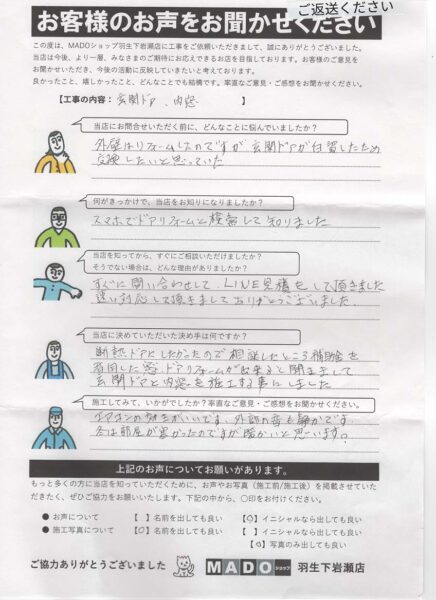 ご返送ください
お客様のお声をお聞かせください
この度は、MADOショップ羽生下岩瀬店に工事をご依頼いただきまして、誠にありがとうございました。
当店は今後、より一層、みなさまのご期待にお応えできるお店を目指しております。お客様のご意見を
お聞かせいただき、今後の活動に反映していきたいと考えております。
良かったこと、嬉しかったこと、どんなことでも結構です。率直なご意見・ご感想をお聞かせください。
【工事の内容: 玄関ドア、内窓 】
当店にお問合せいただく前に、どんなことに悩んでいましたか?
外壁はリフォームしたのですが玄関ドアが日焼したため
交換したいと思っていた
何がきっかけで、当店をお知りになりましたか?
スマホでドアリフォームと検索して知りました
当店を知ってから、すぐにご相談いただけましたか?
そうでない場合は、どんな理由がありましたか?
すぐに問い合わせして、LINE見積をして頂きました
速い対応して頂きましてありがとうございました。
当店に決めていただいた決め手は何ですか?
断熱ドアにしたかったので相談したところ補助金を
着用した窓、ドアリフォームが出来ると聞きまして
玄関ドアと内窓を施工する事にしました
施工してみて、いかがでしたか?率直なご意見・ご感想をお聞かせください。
エアコンの効きがいいです。外部の音も静かです。
冬は部屋が寒かったのですが暖かいと思います?
上記のお声についてお願いがあります。
もっと多くの方に当店を知っていただくために、お声やお写真(施工前/施工後)を掲載させていた
だきたく、ぜひご協力をお願いいたします。下記の中から、〇印をお付けください。
● お声について 【 】名前を出しても良い 【〇】イニシャルなら出しても良い
● 施工写真について 【〇】名前を出しても良い 【 】イニシャルなら出しても良い
【〇】写真のみ出しても良い
ご協力ありがとうございました MADOショップ 羽生下岩瀬店